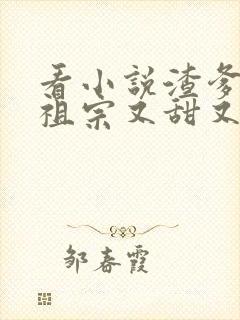 看小説渣爹
祖宗又甜又
邹春霞